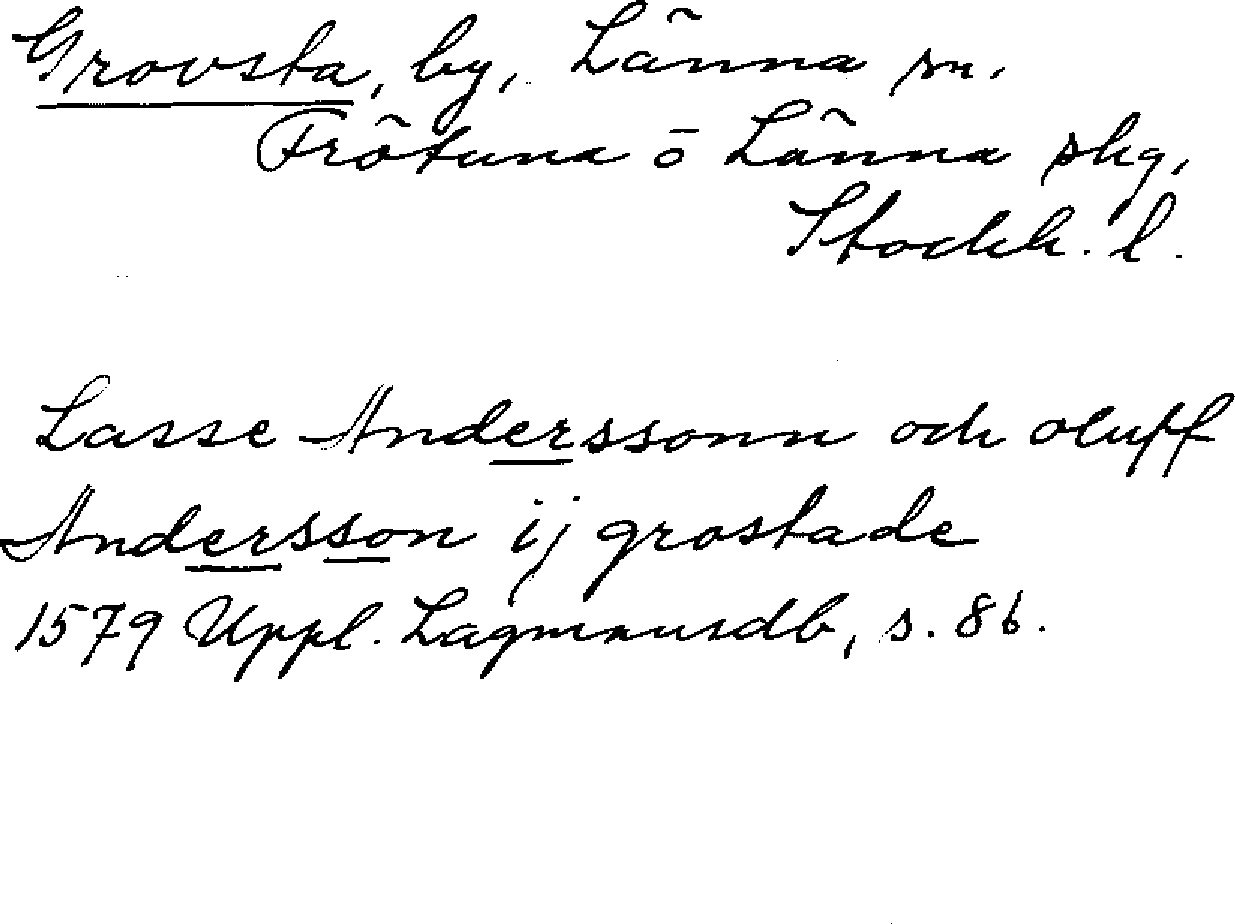 Grovsta, by, Länna sn.
Frötuna o Länna skg,
Stockh. l.
Lasse Anderssonn och oluff
Andersson ij grostade
1579 Uppl. Lagmansdb, s. 86.